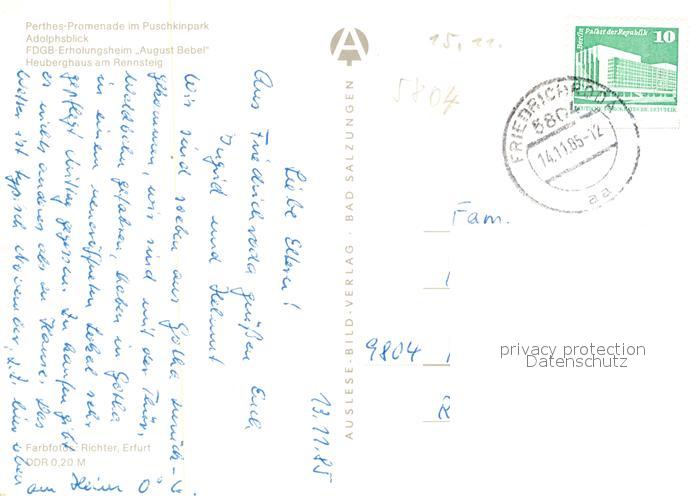 Perthes-Promenade im Puschkinpark
Adolphsblick
FDGB-Erholungsheim „August Bebel"
Heuberghaus am Rennsteig
15.11.
5804
Berlin Palast der Republik 10
DEUTSCHE DEMOKRATISCHE REPUBLIK
FRIEDRICHRODA
5804
14.11.85-12
aa
AUSLESE-BILD-VERLAG · BAD SALZUNGEN
13.11.85
Liebe Eltern!
Aus Friedrichroda grüßen Euch
Ingrid und Helmut
Wir sind soeben aus Gotha zurück-
gekommen, wir sind mit der Thür.
Waldbahn gefahren, haben in Gotha
in einem neueröffneten Lokal sehr
gepflegt Mittag gegessen. Zu kaufen gibt
es nichts anderes als zu Hause. Das
Wetter ist typisch November, z.Z. hier oben
am Heim 0°
Fam.
9804
privacy protection
Datenschutz
Farbfotos: Richter, Erfurt
DDR 0,20 M